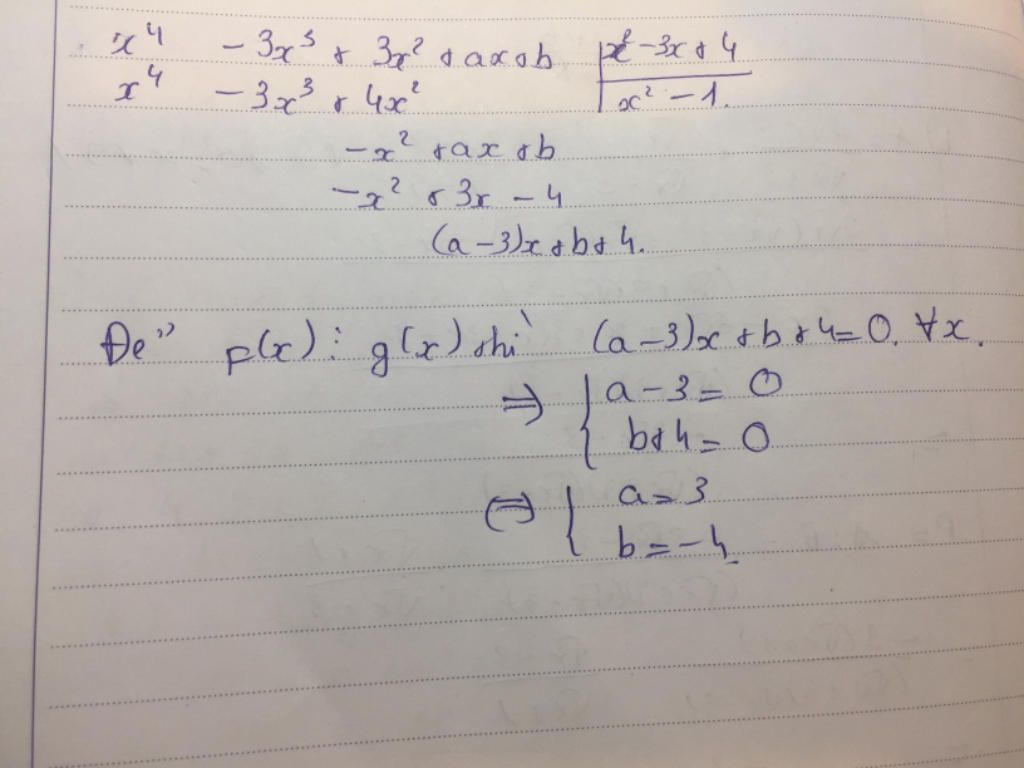 x⁴ - 3x³ + 3x² + ax + b | x² - 3x + 4
x⁴ - 3x³ + 4x² | x² - 1.
-x² + ax + b
-x² + 3x - 4
(a-3)x + b + 4.
Để p(x) ⋮ g(x) thì (a-3)x + b + 4 = 0. ∀x.
⇒ { a - 3 = 0
b + 4 = 0
⇔ { a = 3
b = -4